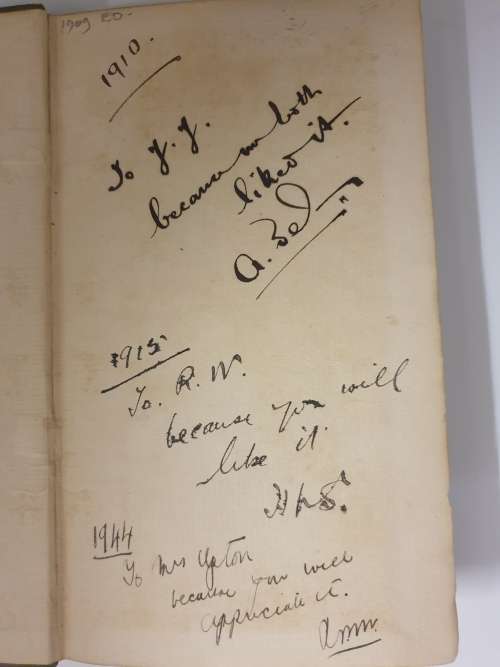 1909 ED.
1910.
To J. J.
because we both
liked it.
A.
1915
To. R. W.
because you will
like it.
1944
To Mrs Upton
because you will
appreciate it.